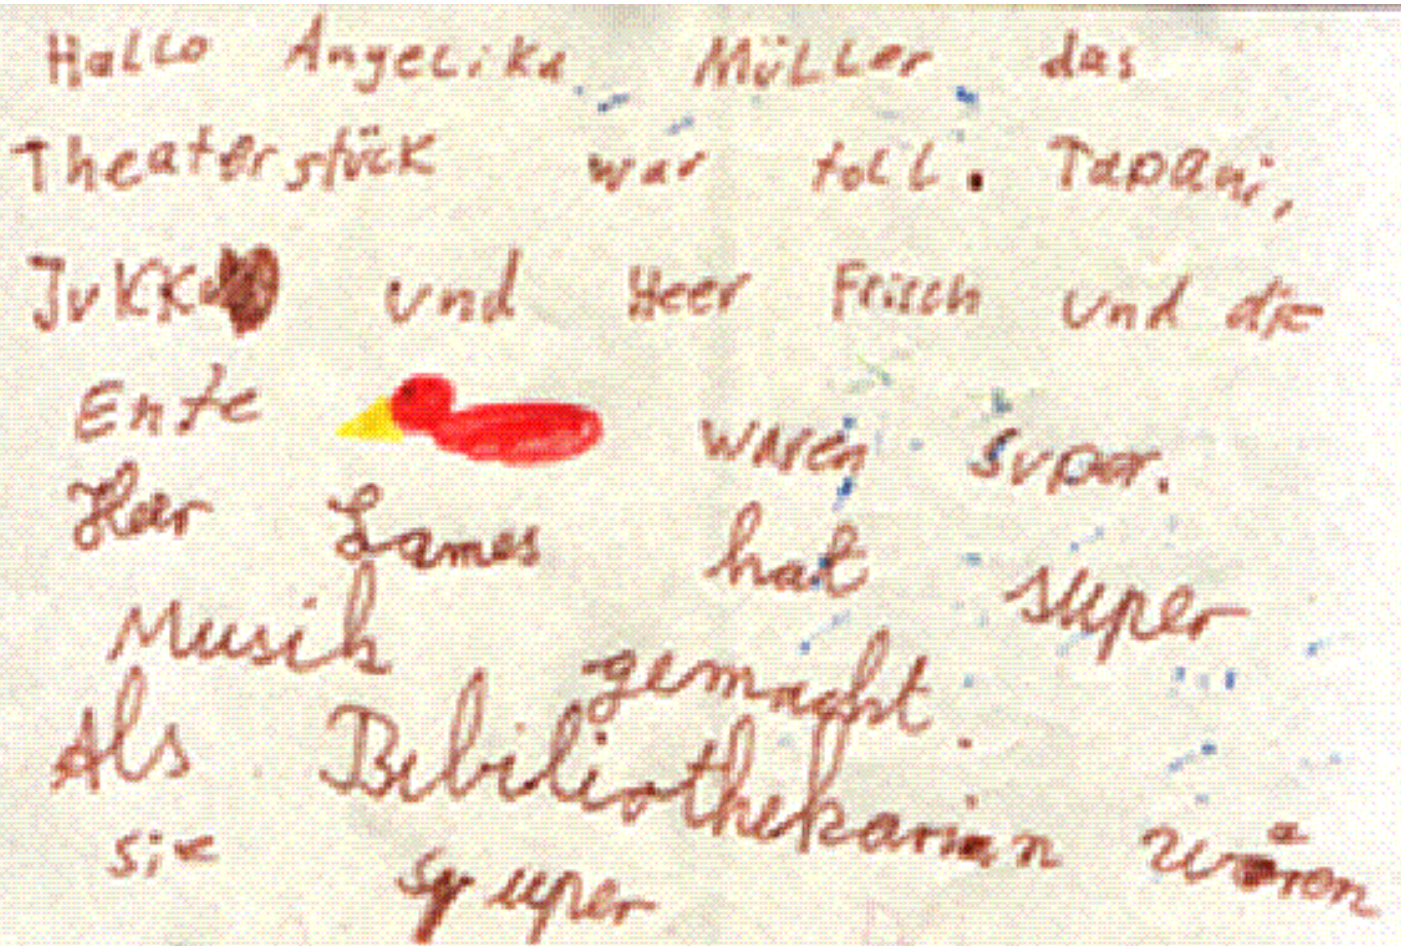 Hallo Angelika Müller das
Theaterstück war toll. Tapani,
Jukka und Heer Frisch und die
Ente waren super.
Herr James hat super
Musik gemacht.
Als Bibiliothekarin waren
sie super